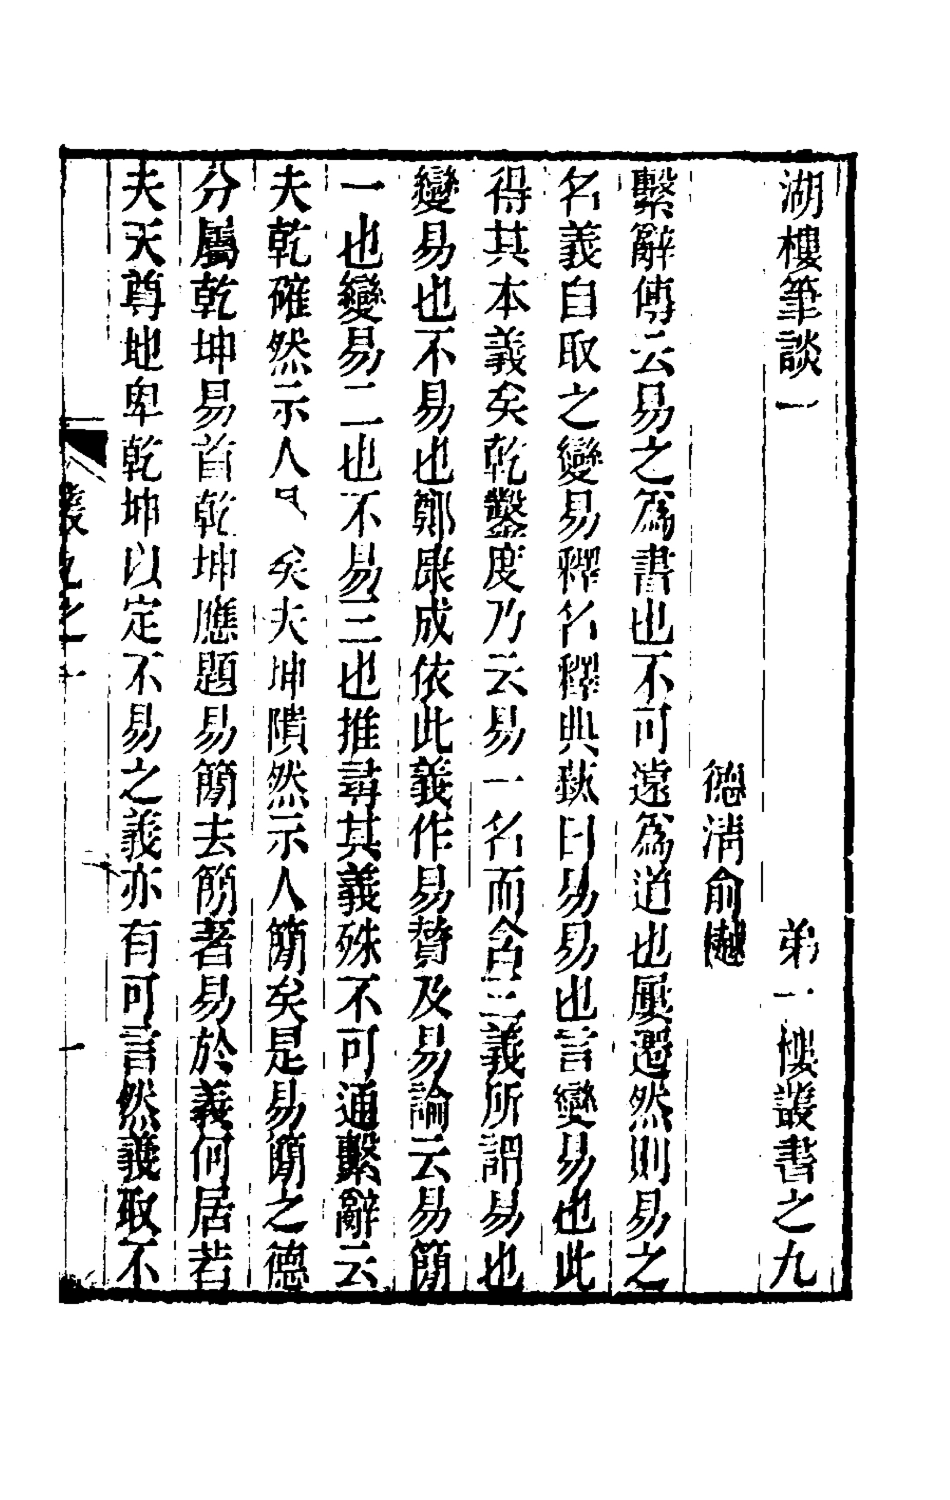 湖樓筆談一　弟一樓叢書之九
德清俞樾
繫辭傳云易之為書也不可遠為道也屢遷然則易之
名義自取之變易釋名釋典蓺曰易易也言變易也此
得其本義矣乾鑿度乃云易一名而含三義所謂易也
變易也不易也鄭康成依此義作易贊及易論云易簡
一也變易二也不易三也推尋其義殊不可通繫辭云
夫乾確然示人易矣夫坤隤然示人簡矣是易簡之德
分屬乾坤易首乾坤應題易簡去簡著易於義何居若
夫天尊地卑乾坤以定不易之義亦有可言然義取不
叢九之一
一